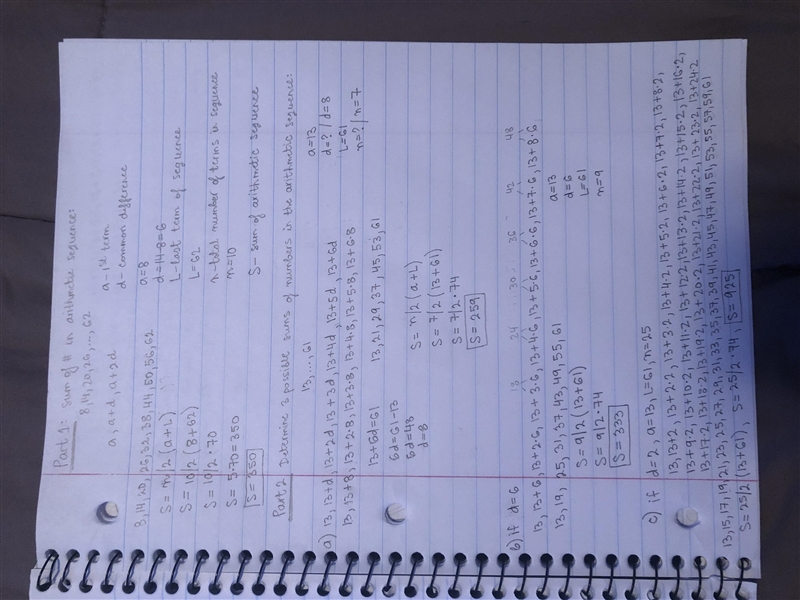 Part 1: Sum of # in arithmetic sequence:
8,14,20,26,...,62
a, a+d, a+2d
a - 1st term
d - common difference
8,14,20,26,32,38,44,50,56,62
a=8
d=14-8=6
L - last term of sequence
L=62
n - total number of terms in sequence
n=10
S - sum of arithmetic sequence
S= n/2 (a+L)
S= 10/2 (8+62)
S= 10/2 · 70
S= 5·70=350
S=350
Part 2 Determine 3 possible sums of numbers in the arithmetic sequence:
13,...,61
a) 13, 13+d, 13+2d, 13+3d, 13+4d, 13+5d, 13+6d
13, 13+8, 13+2·8, 13+3·8, 13+4·8, 13+5·8, 13+6·8
a=13
d=? / d=8
L=61
n=? / n=7
13+6d=61
13,21,29,37,45,53,61
6d=61-13
6d=48
d=8
S= n/2 (a+L)
S= 7/2 (13+61)
S= 7/2·74
S=259
b) if d=6
18 24 ... 30 ... 36 42 48
13, 13+6, 13+2·6, 13+3·6, 13+4·6, 13+5·6, 13+6·6, 13+7·6, 13+8·6,
13, 19, 25, 31, 37, 43, 49, 55, 61
a=13
d=6
L=61
n=9
S= 9/2 (13+61)
S= 9/2·74
S=333
c) if d=2, a=13, L=61, n=25
13, 13+2, 13+2·2, 13+3·2, 13+4·2, 13+5·2, 13+6·2, 13+7·2, 13+8·2,
13+9·2, 13+10·2, 13+11·2, 13+12·2, 13+13·2, 13+14·2, 13+15·2, 13+16·2,
13+17·2, 13+18·2, 13+19·2, 13+20·2, 13+21·2, 13+22·2, 13+23·2, 13+24·2
13,15,17,19,21,23,25,27,29,31,33,35,37,39,41,43,45,47,49,51,53,55,57,59,61
S= 25/2 (13+61), S= 25/2·74, S=925